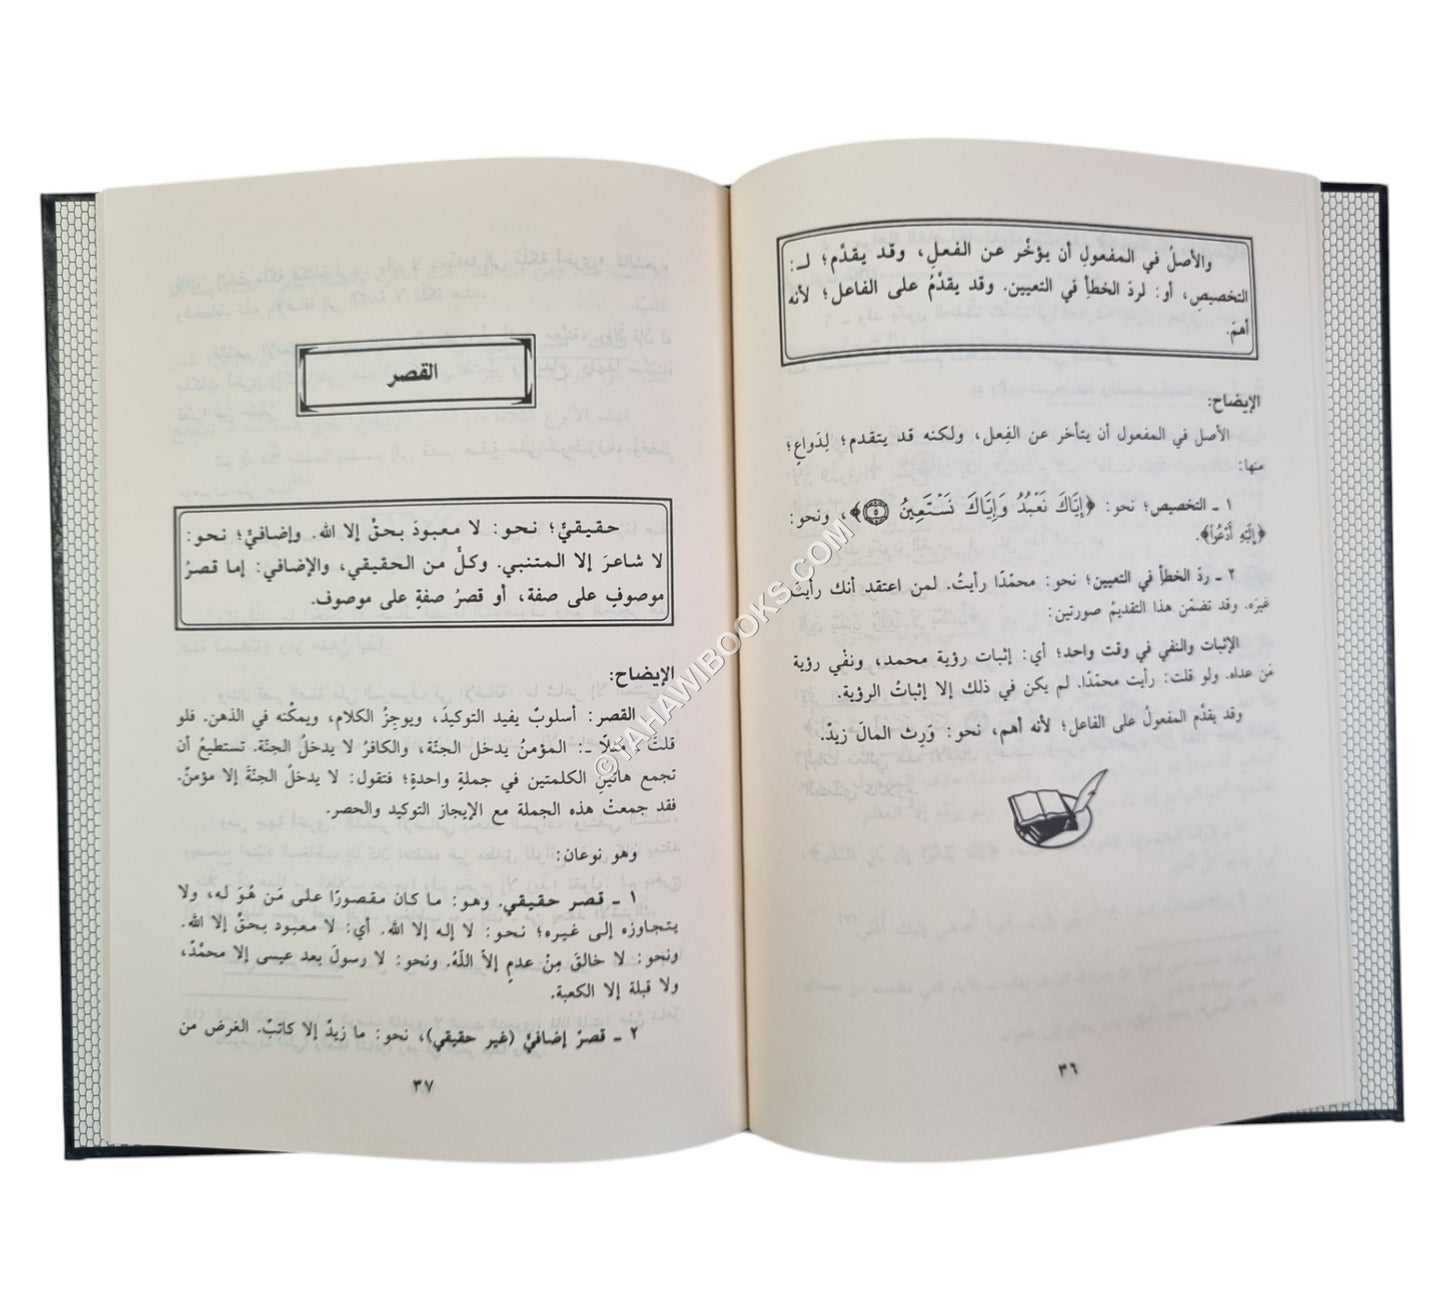 والأصلُ في المفعولِ أن يؤخَّر عن الفعلِ، وقد يقدَّم؛ لـ:
التخصيصِ، أو: لردَ الخطأِ في التعيين. وقد يقدَّمُ على الفاعل؛ لأنه
أهمّ.
الإيضاح:
الأصل في المفعول أن يتأخر عن الفِعل، ولكنه قد يتقدم؛ لِدَواعٍ؛
منها:
١ ـ التخصيص؛ نحو: ﴿إِيَّاكَ نَعْبُدُ وَإِيَّاكَ نَسْتَعِينُ ۝٥﴾، ونحو:
﴿إِلَيْهِ أَدْعُوا﴾.
٢ ـ ردّ الخطأِ في التعيين؛ نحو: محمّدًا رأيتُ. لمن اعتقد أنك رأيتَ
غيرَه. وقد تضمّن هذا التقديمُ صورتين:
الإثبات والنفي في وقت واحد؛ أي: إثبات رؤية محمد، ونفْي رؤية
مَن عداه. ولو قلت: رأيت محمّدًا. لم يكن في ذلك إلا إثباتُ الرؤية.
وقد يقدَّم المفعولُ على الفاعل؛ لأنه أهم، نحو: وَرِث المالَ زيدٌ.
٣٦
القصر
حقيقيٌّ؛ نحو: لا معبودَ بحقٍّ إلا الله. وإضافيٌّ؛ نحو:
لا شاعرَ إلا المتنبي. وكلٌّ من الحقيقي، والإضافي: إما قصرُ
موصوفٍ على صفة، أو قصرُ صفةٍ على موصوف.
الإيضاح:
القصر: أسلوبٌ يفيد التوكيدَ، ويوجِزُ الكلام، ويمكّنه في الذهن. فلو
قلتَ ـ مثلًا ـ: المؤمنُ يدخل الجنّة، والكافرُ لا يدخلُ الجنّة. تستطيعُ أن
تجمع هاتينِ الكلمتين في جملةٍ واحدةٍ؛ فتقول: لا يدخلُ الجنّةَ إلا مؤمنٌ.
فقد جمعتْ هذه الجملة مع الإيجاز التوكيد والحصر.
وهو نوعان:
١ ـ قصر حقيقي. وهو: ما كان مقصورًا على مَن هُوَ له، ولا
يتجاوزه إلى غيره؛ نحو: لا إله إلا الله. أي: لا معبود بحقٍّ إلا الله.
ونحو: لا خالقَ مِنْ عدمٍ إلاّ اللّهُ. ونحو: لا رسولَ بعد عيسى إلا محمّدٌ،
ولا قبلة إلا الكعبة.
٢ ـ قصرٌ إضافيٌّ (غير حقيقي)، نحو: ما زيدٌ إلا كاتبٌ. الغرض من
٣٧
©TAHAWIBOOKS.COM